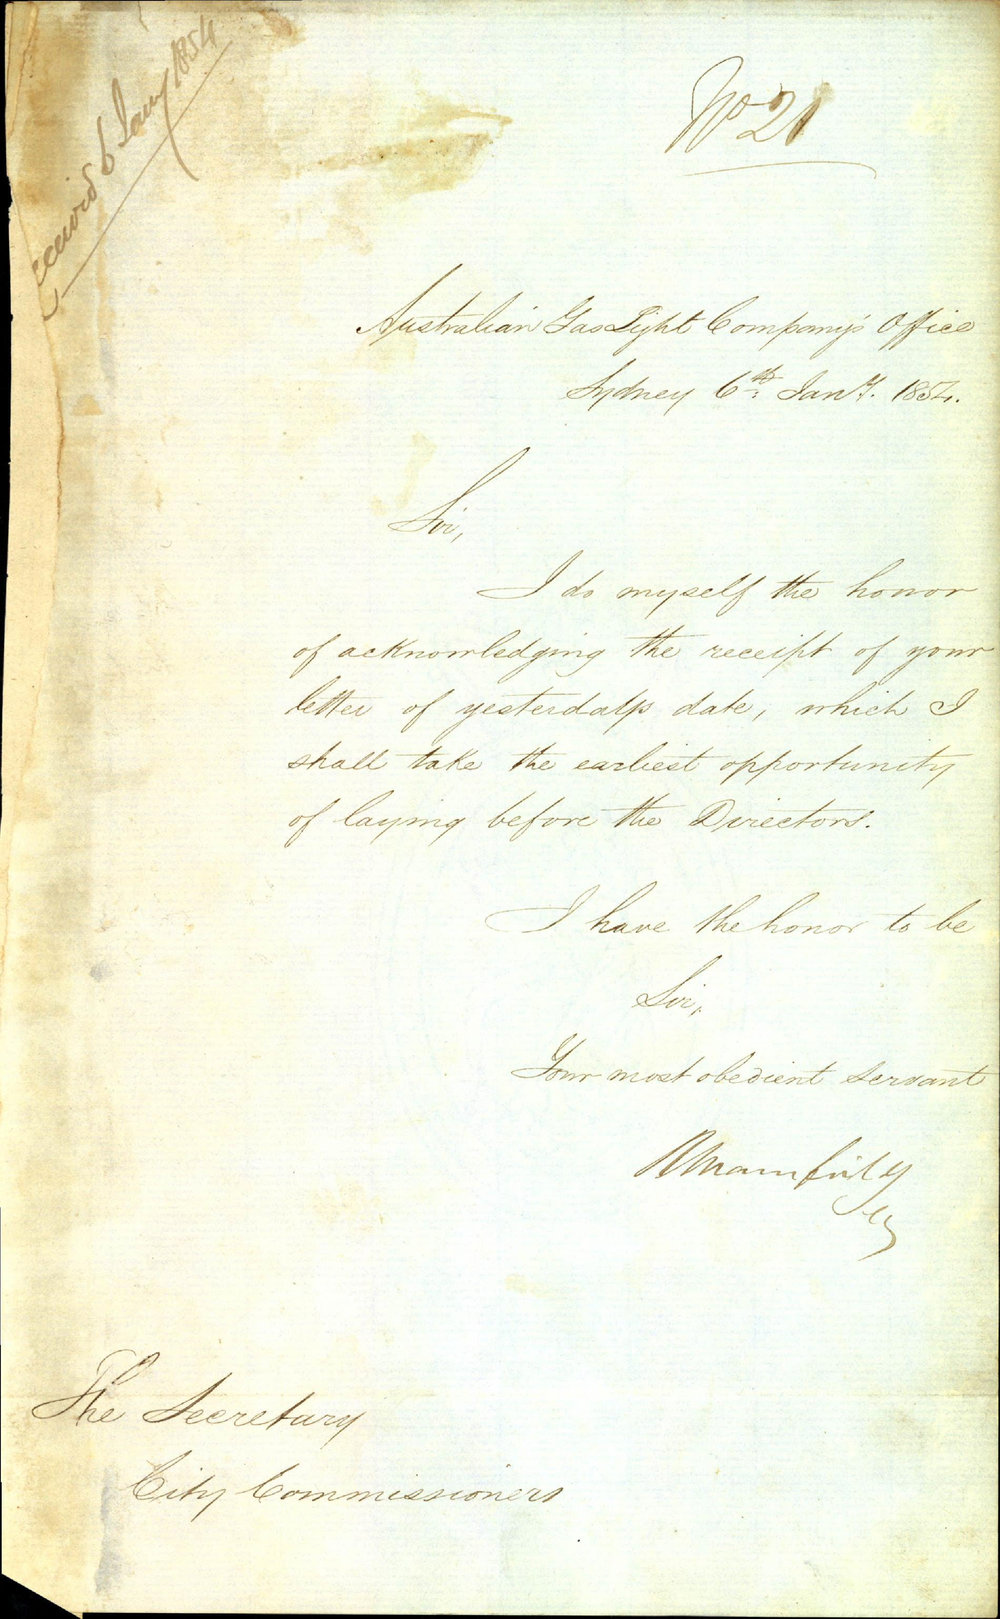 Received 6 Jany 1854
No 21
Australian Gas Light Company's Office
Sydney 6th Jany. 1854.
Sir,
I do myself the honor
of acknowledging the receipt of your
letter of yesterday's date, which I
shall take the earliest opportunity
of laying before the Directors.
I have the honor to be
Sir,
Your most obedient servant
The Secretary
City Commissioners